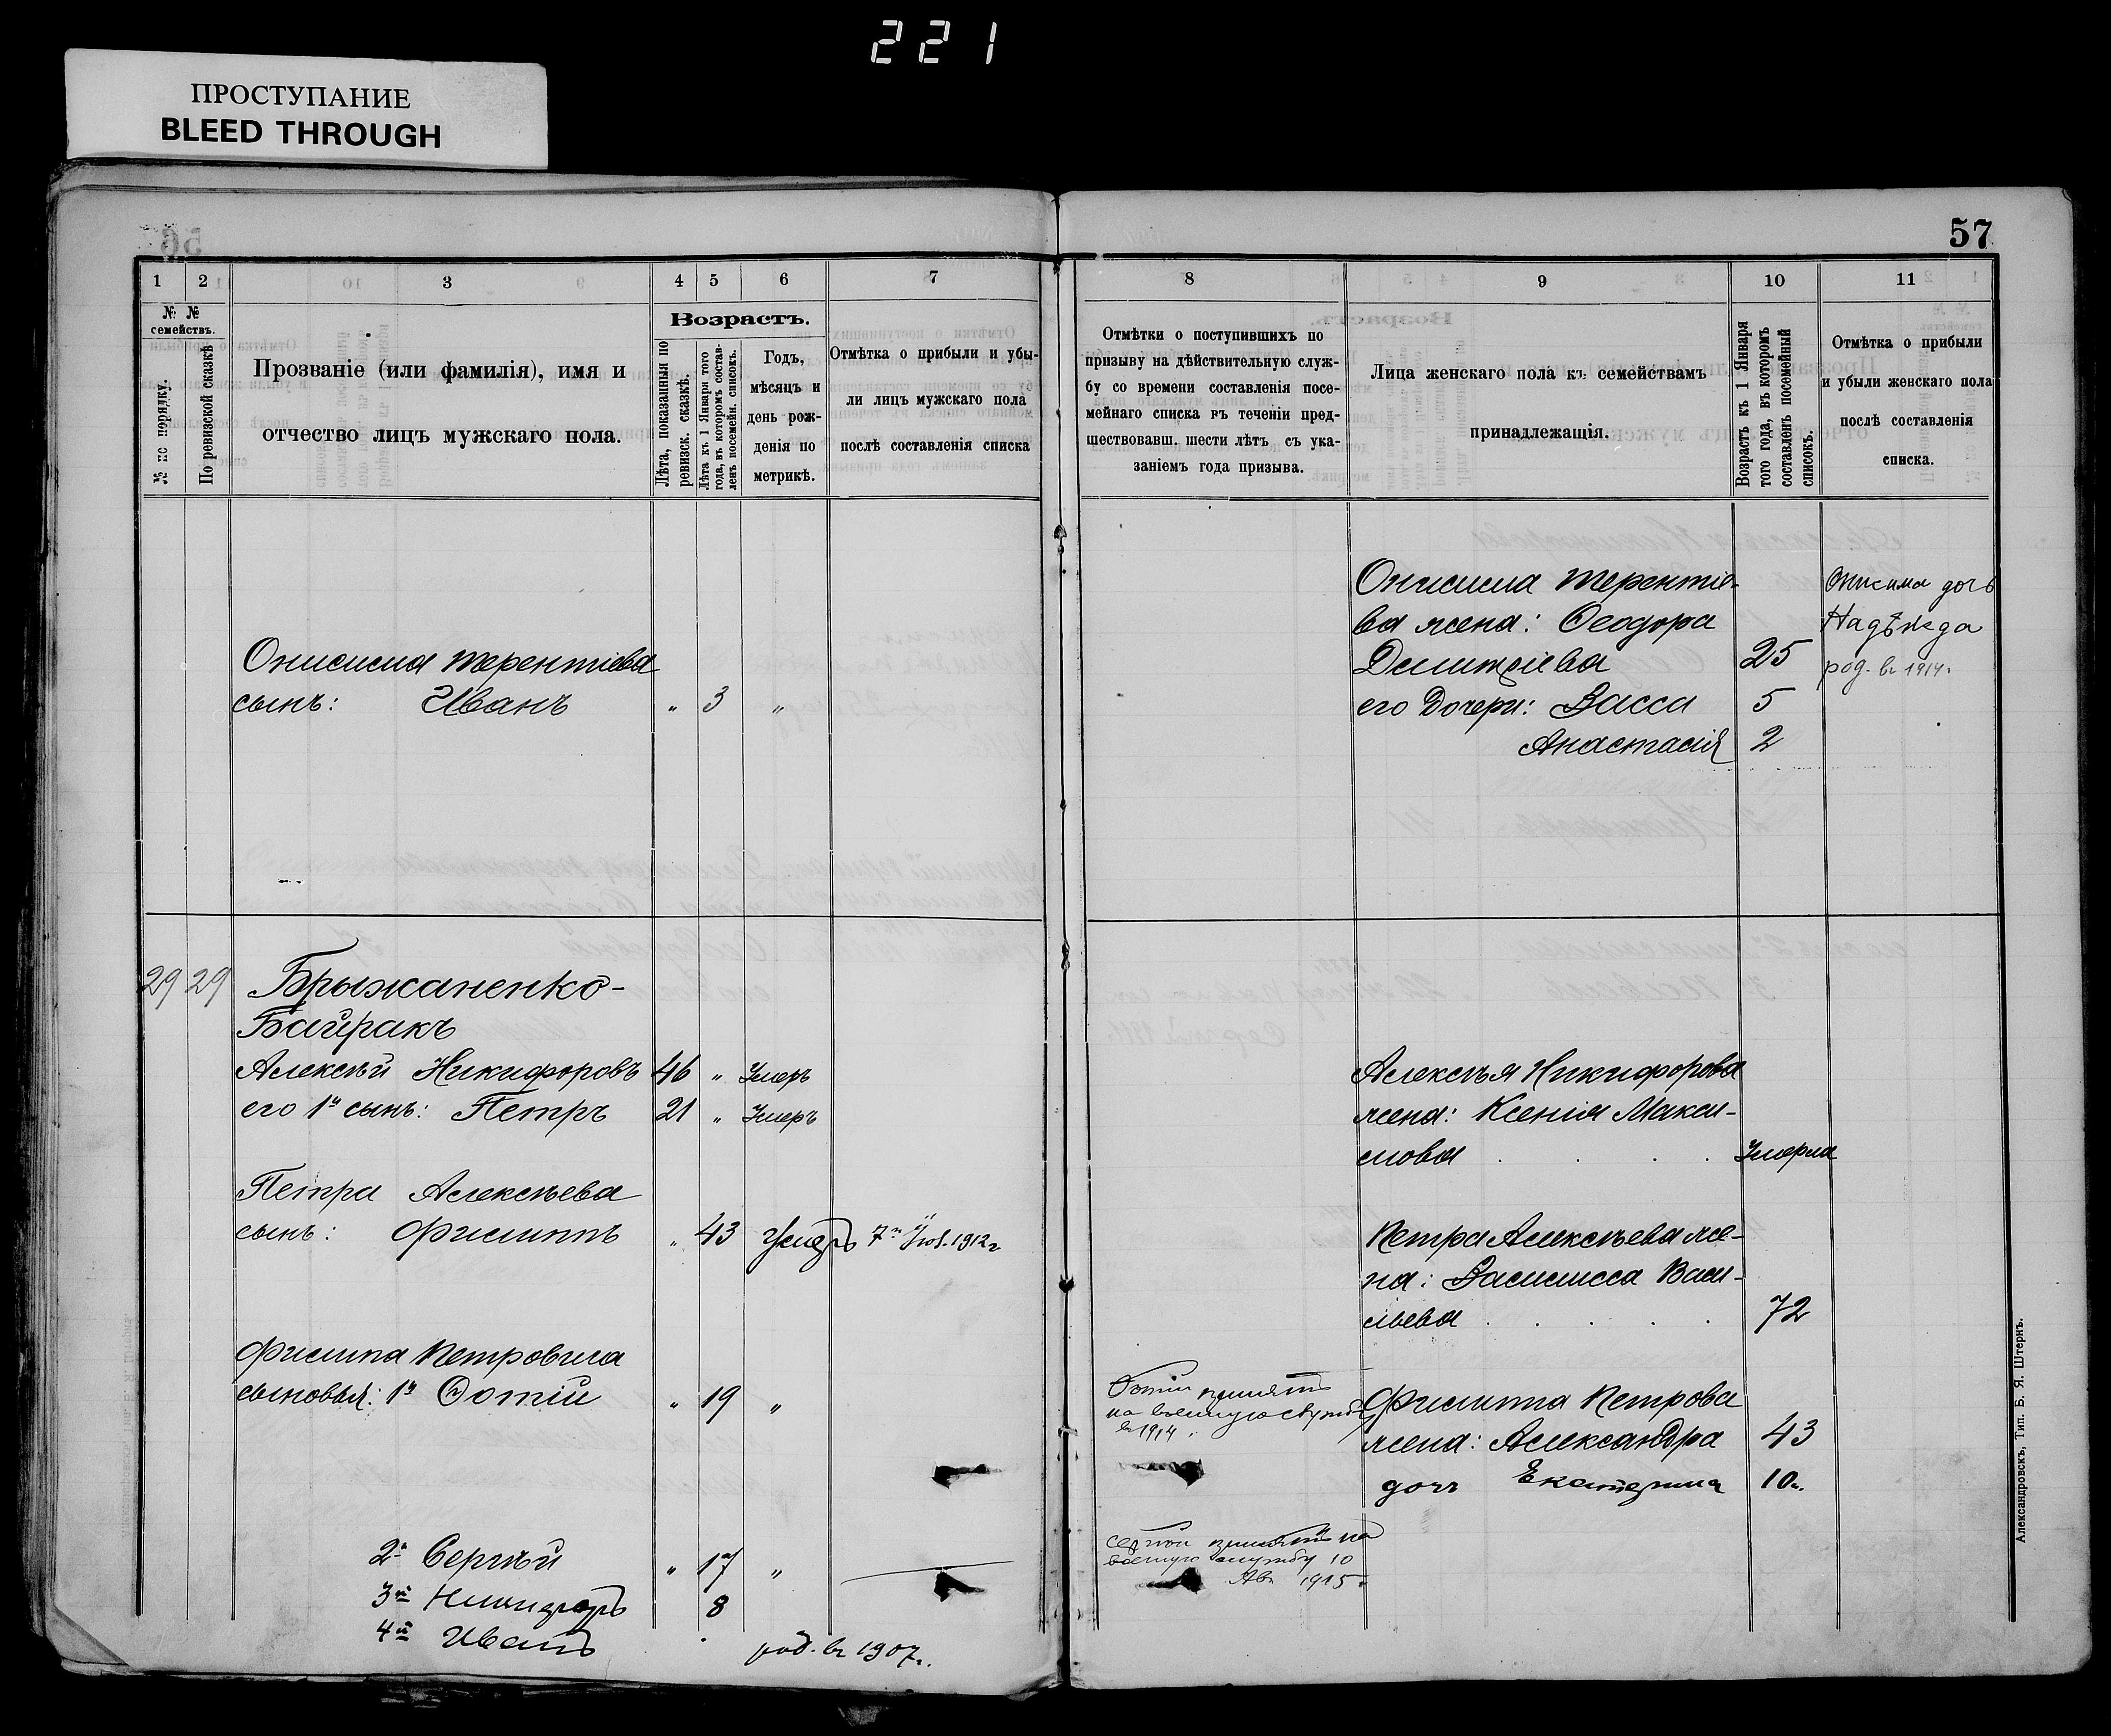 221
ПРОСТУПАНИЕ
BLEED THROUGH
57
1 2 3 4 5 6 7
№ №
семействъ.
№ по порядку.
По ревизской сказкѣ
Прозваніе (или фамилія), имя и
отчество лицъ мужскаго пола.
Возрастъ.
Лѣта, показанныя по
ревизск. сказкѣ.
Лѣта къ 1 Января того
года, въ которомъ состав-
ленъ посемейн. списокъ.
Годъ,
мѣсяцъ и
день рож-
денія по
метрикѣ.
Отмѣтка о прибыли и убы-
ли лицъ мужскаго пола
послѣ составленія списка
Онисима Терентіева
сынъ: Иванъ „ 3 „
29 29 Брыжаненко-
Байракъ
Алексѣй Никифоровъ 46 „ Умеръ
его 1й сынъ: Петръ 21 „ Умеръ
Петра Алексѣева
сынъ: Филиппъ „ 43 Умеръ 1912 г
Филипа Петровича
сыновья: 1й Фотій „ 19 „
2й Сергѣй „ 17 „
3й Никифоръ 8
4й Иванъ род. въ 1907 г.
8 9 10 11
Отмѣтки о поступившихъ по
призыву на дѣйствительную служ-
бу со времени составленія посе-
мейнаго списка въ теченіи пред-
шествовавш. шести лѣтъ съ ука-
заніемъ года призыва.
Лица женскаго пола къ семействамъ
принадлежащія.
Возрастъ къ 1 Января
того года, въ которомъ
составленъ посемейный
списокъ.
Отмѣтка о прибыли
и убыли женскаго пола
послѣ составленія
списка.
Онисима Терентіе-
ва жена: Феодора
Димитріева 25
его Дочери: Васса 5
Анастасія 2
Онисима дочь
Надѣжда
род. въ 1914 г.
Алексѣя Никифорова
жена: Ксенія Макси-
мова . . . . Умерла
Петра Алексѣева же-
на: Василисса Васи-
льева . . . . . 72
Фотій принятъ
на военную службу
въ 1914 г.
Филиппа Петрова
жена: Александра 43
дочь Екатерина 10 л.
Сергѣй принятъ на
военную службу 10
Авг 1915 г.
Александровскъ, Тип. Б. Я. Штернъ.